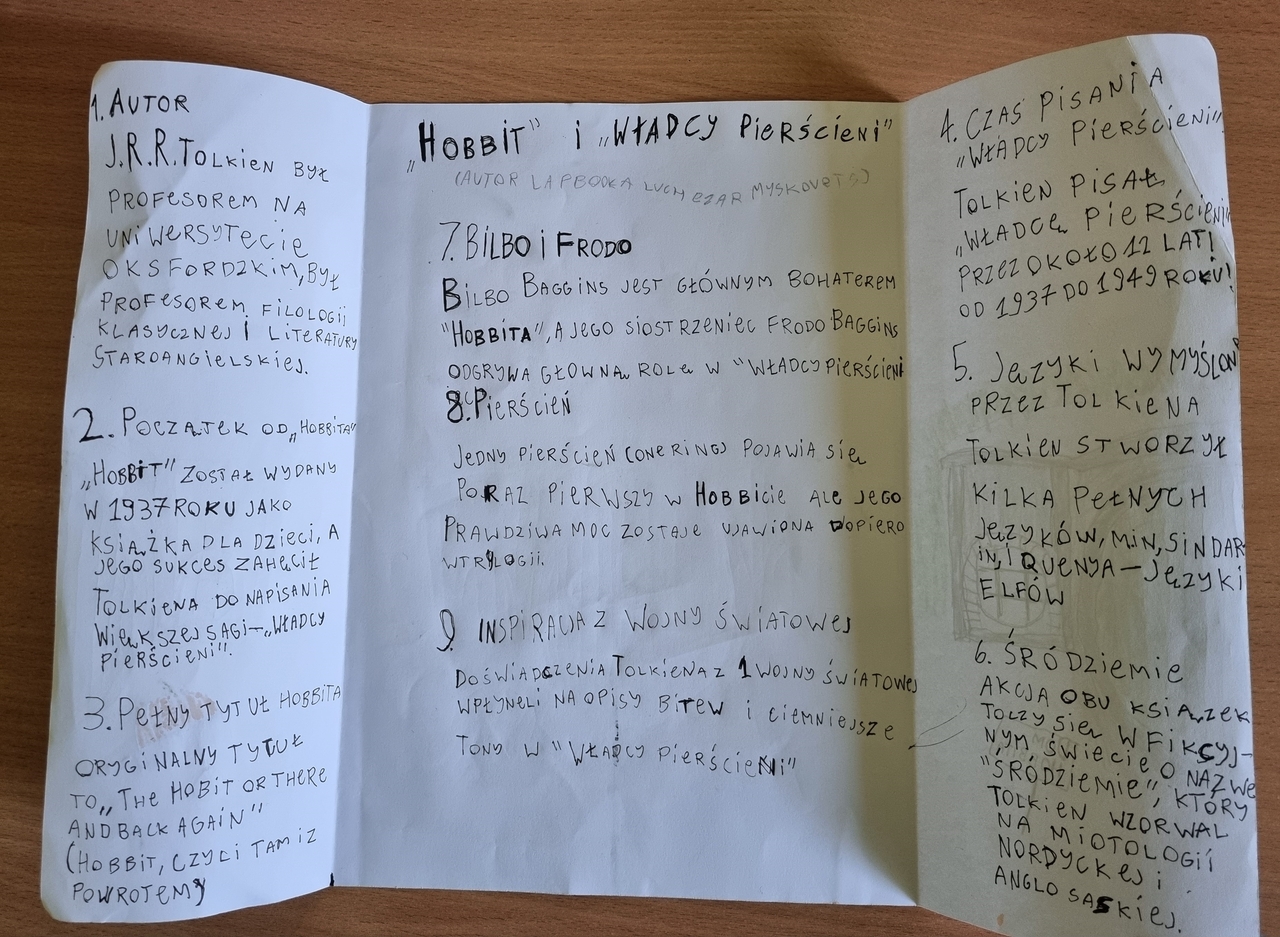 1. AUTOR
J.R.R. TOLKIEN BYŁ
PROFESOREM NA
UNIWERSYTECIE
OKSFORDZKIM, BYŁ
PROFESOREM FILOLOGII
KLASYCZNEJ I LITERATURY
STAROANGIELSKIEJ.
2. POCZĄTEK OD „HOBBITA"
„HOBBIT" ZOSTAŁ WYDANY
W 1937 ROKU JAKO
KSIĄŻKA DLA DZIECI, A
JEGO SUKCES ZAHĘCIŁ
TOLKIENA DO NAPISANIA
WIĘKSZEJ SAGI – „WŁADCY
PIERŚCIENI".
3. PEŁNY TYTUŁ HOBBITA
ORYGINALNY TYTUŁ
TO „THE HOBIT OR THERE
AND BACK AGAIN"
(HOBBIT, CZYLI TAM I Z
POWROTEM)
„HOBBIT" i „WŁADCY PIERŚCIENI"
(AUTOR LAPBOOKA LUCHEZAR MYSKOVETS)
7. BILBO I FRODO
BILBO BAGGINS JEST GŁÓWNYM BOHATEREM
"HOBBITA", A JEGO SIOSTRZENIEC FRODO BAGGINS
ODGRYWA GŁOWNĄ ROLĘ W "WŁADCY PIERŚCIENI
8. PIERŚCIEŃ
JEDNY PIERŚCIEŃ (ONE RING) POJAWIA SIĘ
PO RAZ PIERWSZY W HOBBICIE ALE JEGO
PRAWDZIWA MOC ZOSTAJE UJAWIONA DOPIERO
W TRYLOGII.
9. INSPIRACJA Z WOJNY ŚWIATOWEJ
DOŚWIADCZENIA TOLKIENA Z 1 WOJNY ŚWIATOWEJ
WPŁYNELI NA OPISY BITEW I CIEMNIEJSZE
TONY W "WŁADCY PIERŚCIENI"
4. CZAS PISANIA
„WŁADCY PIERŚCIENI"
TOLKIEN PISAŁ
„WŁADCĘ PIERŚCIENI"
PRZEZ OKOŁO 12 LAT!
OD 1937 DO 1949 ROKU!
5. JĘZYKI WYMYŚLONE
PRZEZ TOLKIENA
TOLKIEN STWORZYŁ
KILKA PEŁNYCH
JĘZYKÓW, MIN, SINDAR-
IN, I QUENYA – JĘZYKI
ELFÓW
6. ŚRÓDZIEMIE
AKCJA OBU KSIĄZEK
TOCZY SIĘ W FIKCYJ-
NYM ŚWIECIE O NAZWE
"ŚRÓDZIEMIE", KTÓRY
TOLKIEN WZORWAL
NA MIOTOLOGII
NORDYCKEJ I
ANGLOSASKIEJ.